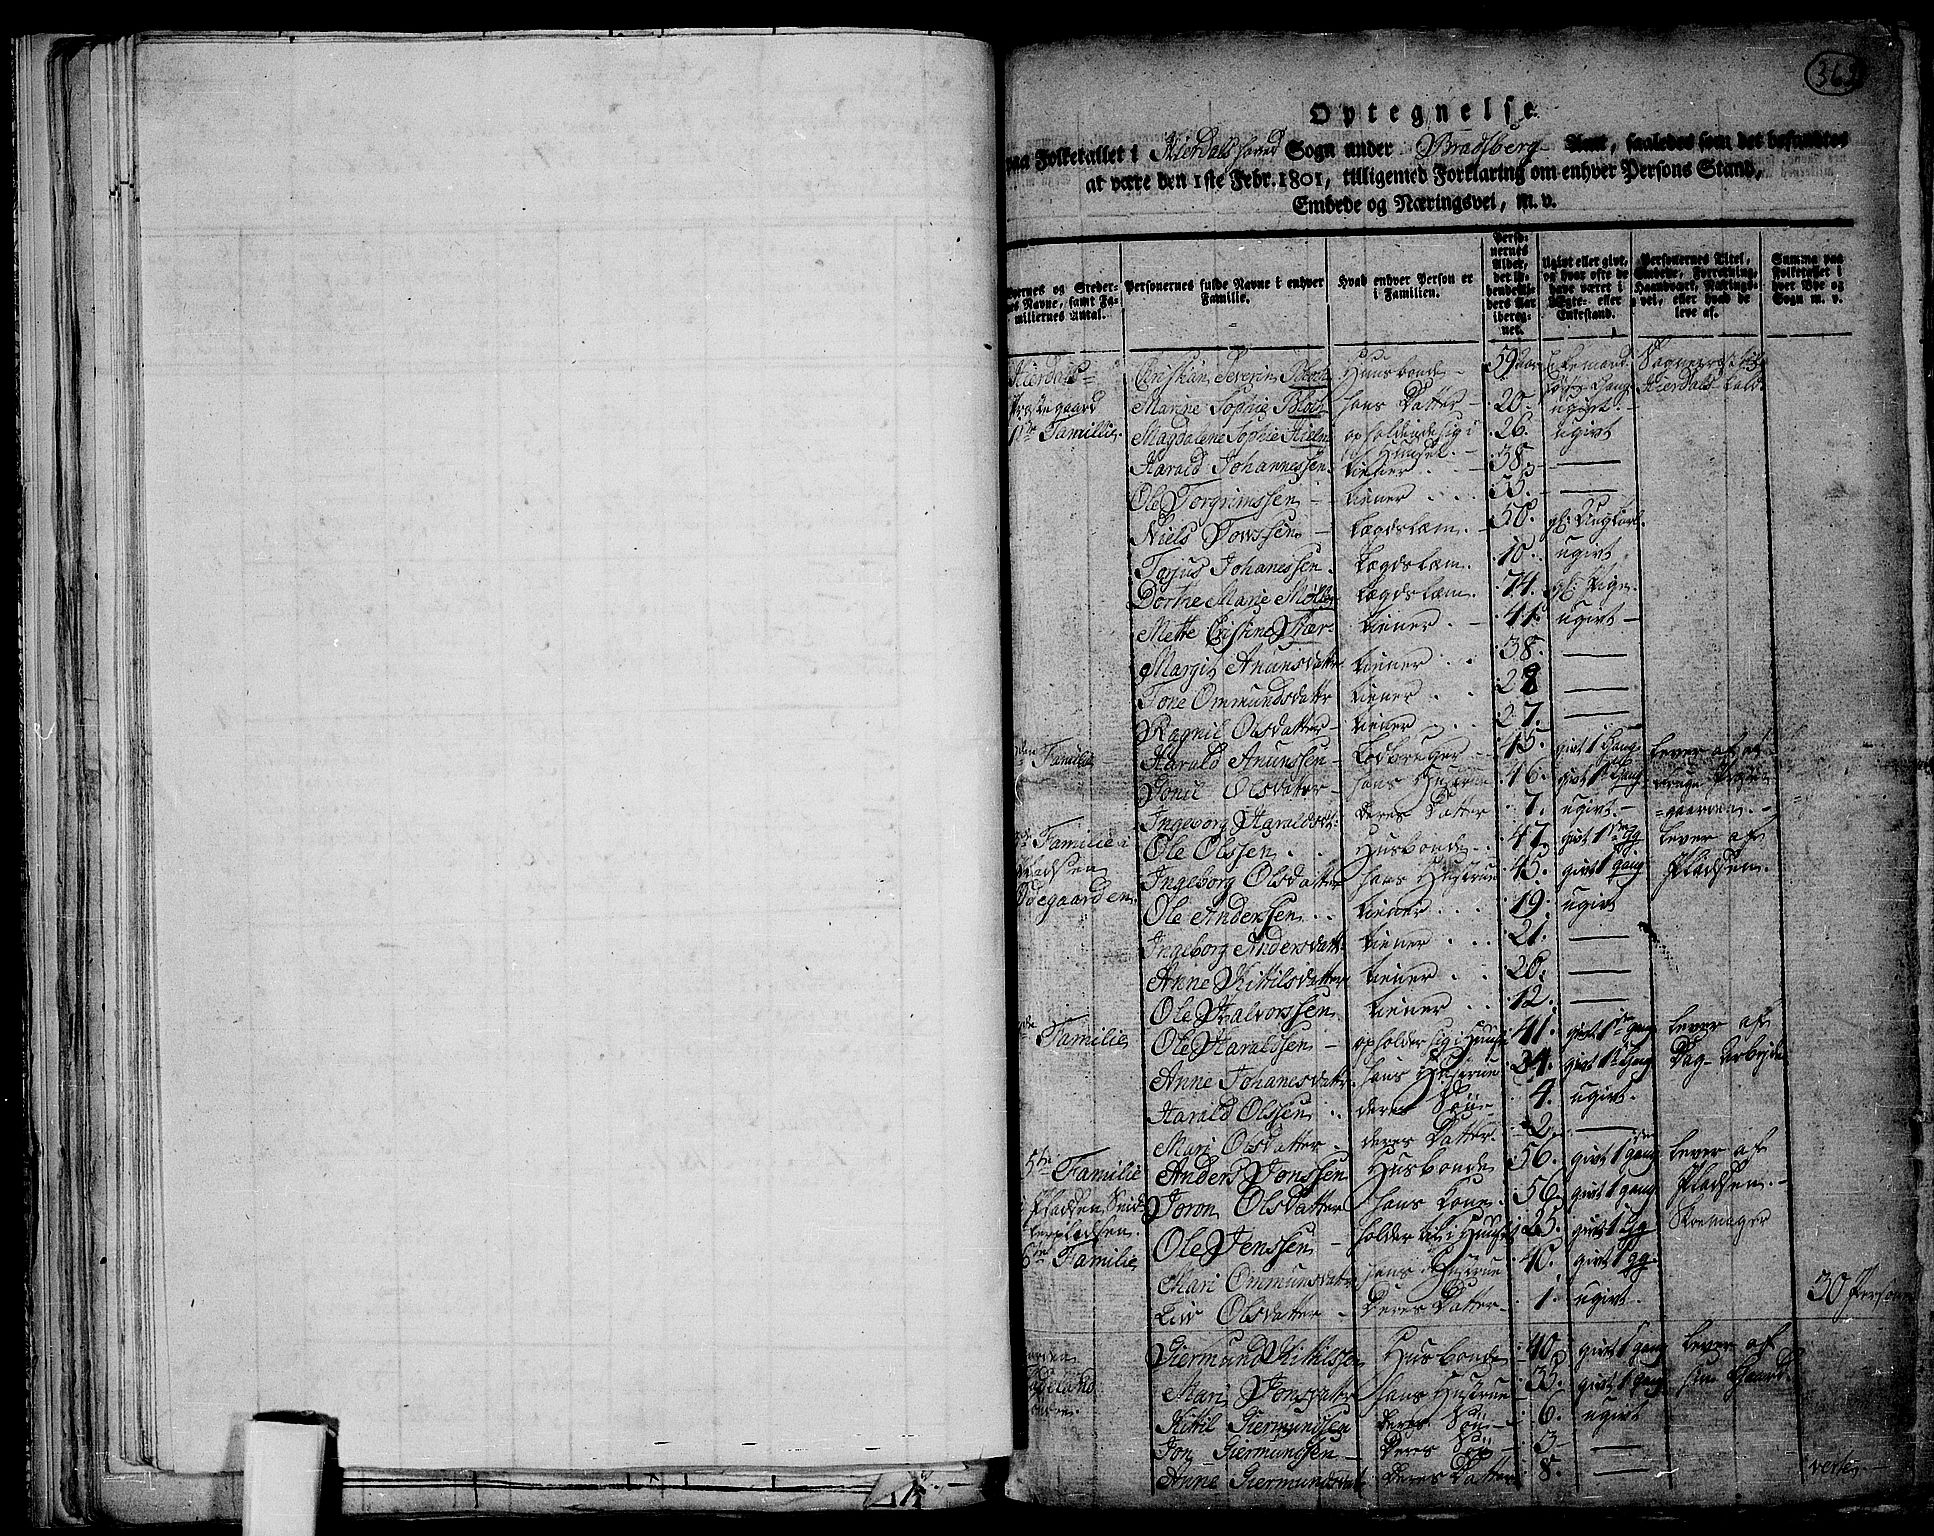 Optegnelse
paa Folketallet i Hierdals hoved Sogn under Bradsberg Amt, saaledes som det befandtes
at være den 1ste Febr. 1801, tilligemed Forklaring om enhver Persons Stand,
Embede og Næringsvei, m. v.
Gaardernes og Stedernes Navne, samt Familiernes Antal. Personernes fulde Navne i enhver Familie. Hvad enhver Person er i Familien. Personernes Alder, det løbende Alders Aar iberegnet. Ugivt eller givt, og hvor ofte de have været i Ægte- eller Enkestand. Personernes Titel, Embede, Forretning, Haandværk, Næringsvei, eller hvad de leve af. Summa paa Folketallet i hver Bye og Sogn m. v.
Hierdals Christian Severin Bloch Huusbonde 59 Aar Enkemand Sogneprest til
første Gang Hierdals Kald
Præstegaard Marine Sophie Bloch hans Datter 20. ugivt
1ste Familie Magdalene Sophie Hielm opholdende sig i Huuset 26. ugivt
Harald Johannessen tiener 38. —
Ole Torgrimssen tiener 55. —
Niels Towssen Lægdslem 50. gl: Ungkarl
Tarjus Johanessen Lægdslem 10. ugivt
Dorthe Marie Møller Lægdslem 74. gl: Pige
Mette Cristine Skær tiener 41. ugivt
Margit Anunsdatter tiener 38. —
Tone Ommundsdattr tiener 28 —
Ragnil Olsdatter tiener 27. —
Familie Harald Anunssen 45. givt 1 Gang lever af at
Gonil Olsdatter hans Hustrue 46. givt 1 Gang
Ingeborg Haraldsdtr: deres Datter 7. ugivt gaarden
Familie i Ole Olssen Husbonde 47. givt 1 Gg lever af
Pladsen Ingeborg Olsdatter hans Hustrue 45. givt 1 gang Pladsen
Ødegaarden Ole Anderssen tiener 19. ugivt
Ingeborg Andersdattr tiener 21. —
Anne Kittilsdatter tiener 26. —
Ole Halvorssen tiener 12. —
Familie Ole Haraldssen opholder sig i Huuset 41. givt 1 gang lever af
Anne Johanesdattr hans Hustrue 34. givt 1 Gang Dag-Arbejde
Harald Olssen deres Søn 4. ugivt
Mari Olsdatter deres Datter 2. —
5te Familie Anders Jonssen Husbonde 56. givt 1 gang lever af
i Pladsen Joron Olsdatter hans Kone 56. givt 1 gang Pladsen
Ole Jenssen holder til i Huuset 35. givt 1 Gg Skomager
6te Familie Mari Ommunsdatr hans Hustrue 40. givt 1 gg
Liv Olsdatter deres Datter 1. ugivt 30 Personer
Giermund Kittilssen Husbonde 40. givt 1 gang lever af
Mari Jonsdatter hans Hustrue 35. givt 1 Gang sin Gaard
Kittil Giermundssen deres Søn 6. ugivt
Jon Giermundssen deres Søn 3 —
Anne Giermundsdat deres Datter 8. — verte